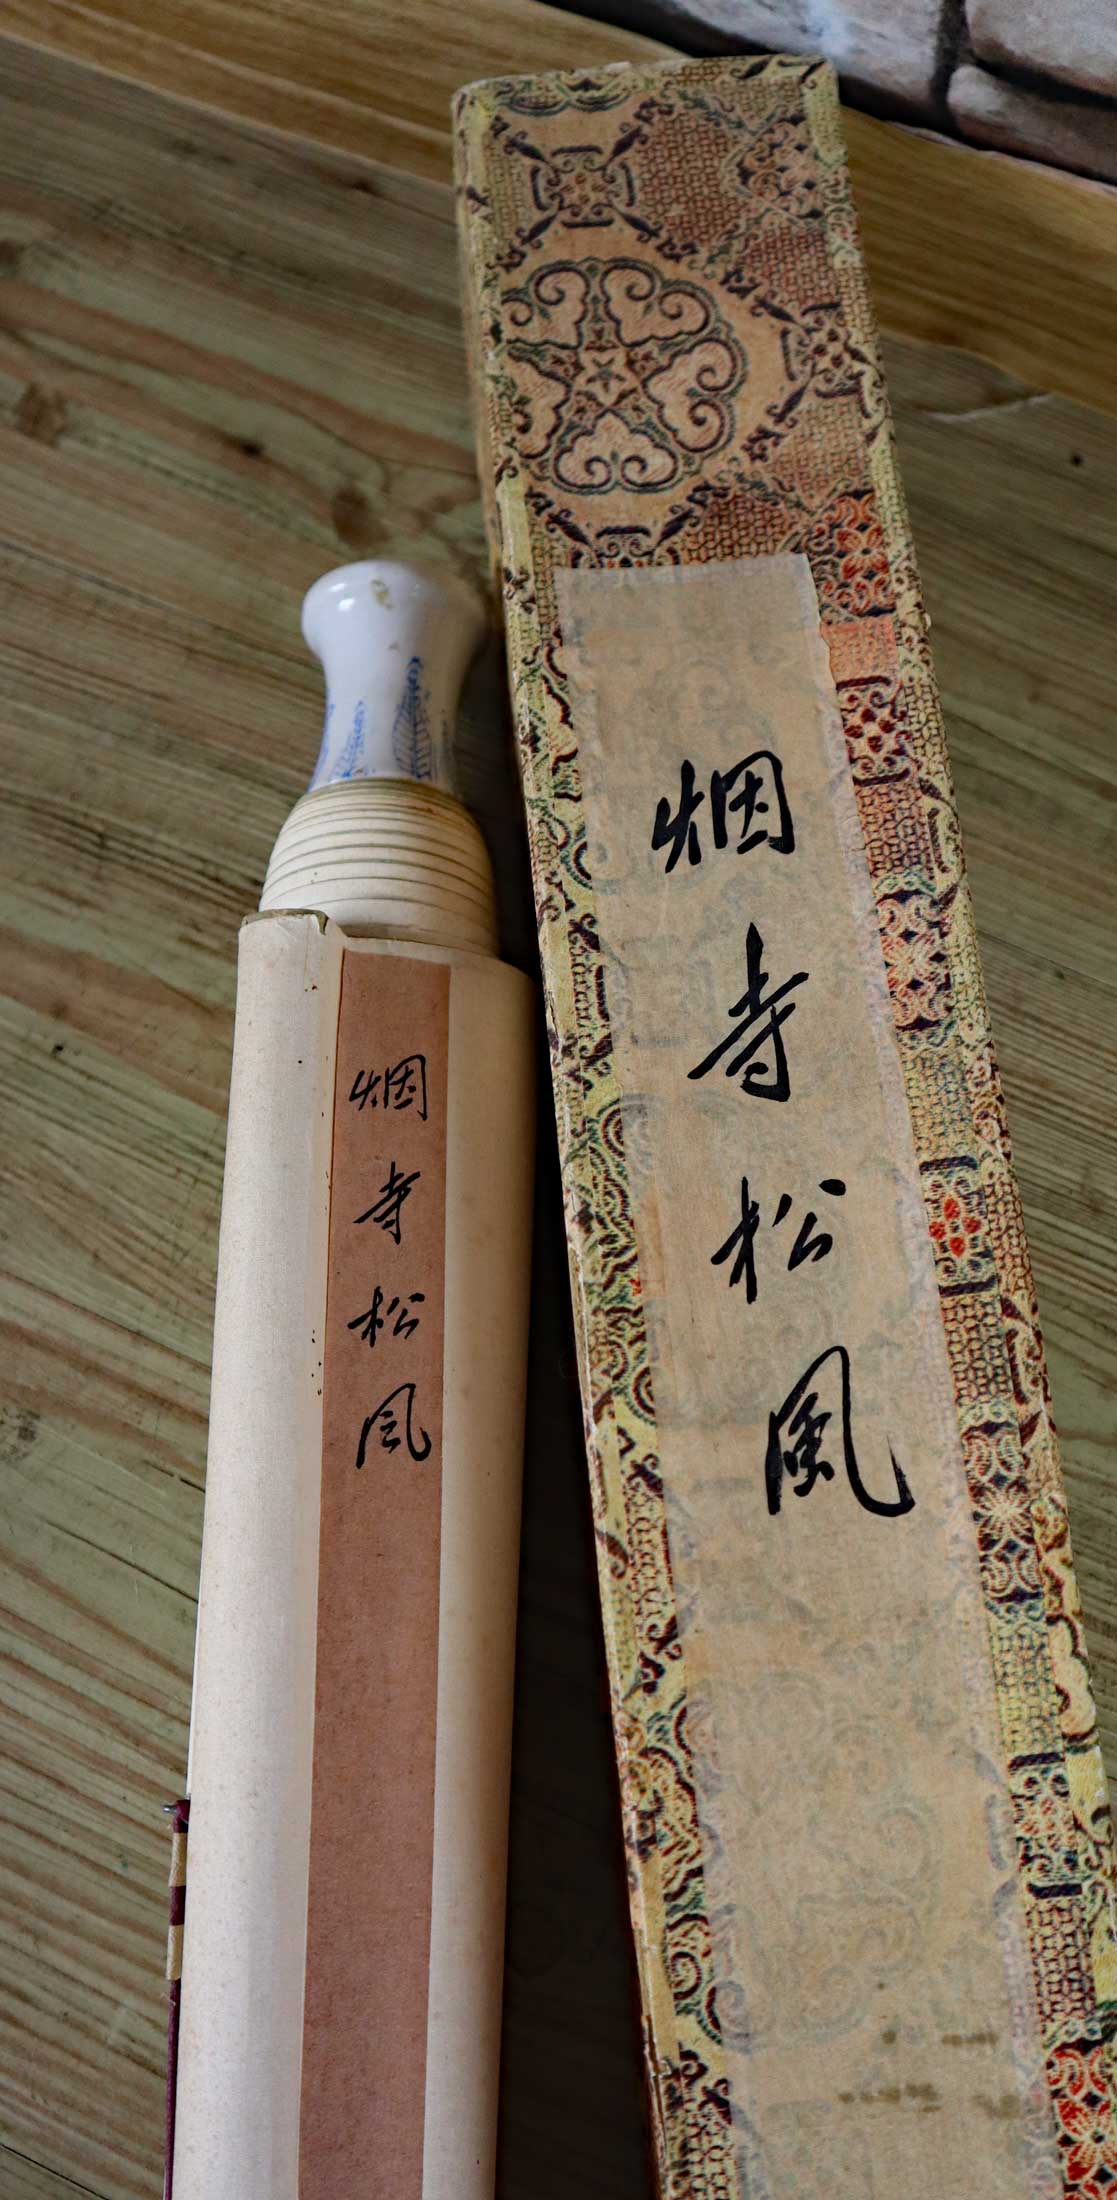 烟寺松風
烟寺松風